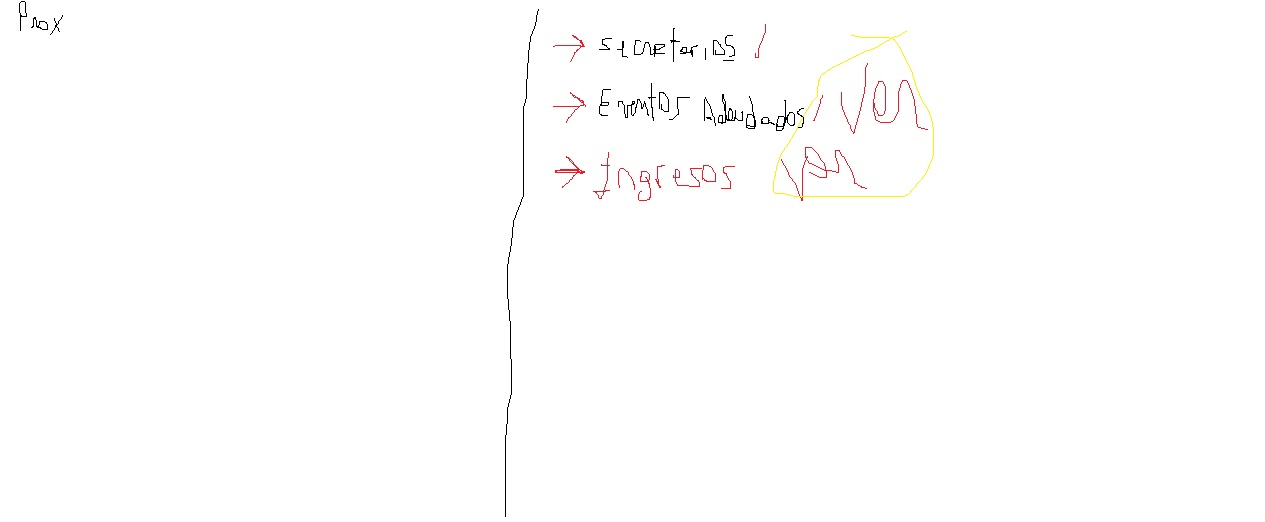 Prox
→ secretarios /
→ Eventos Adeudados /
→ Ingresos
ver